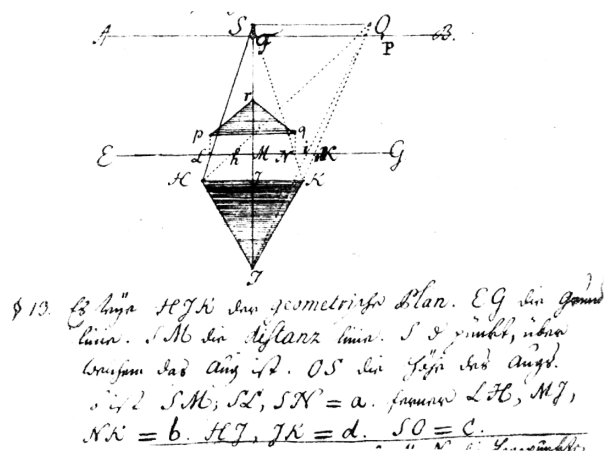 S O
A P B.
r
p q
E L h M N K G
H J K
J
§ 13. Es seye HJK der geometrische Plan. EG die Grund
linie. SM die distanz linie. S d. punkt, über
welchem das Aug ist. OS die Höhe des Augs.
SM, SL, SN = a. ferner LH, MJ,
NK = b. HJ, JK = d. SO = c.